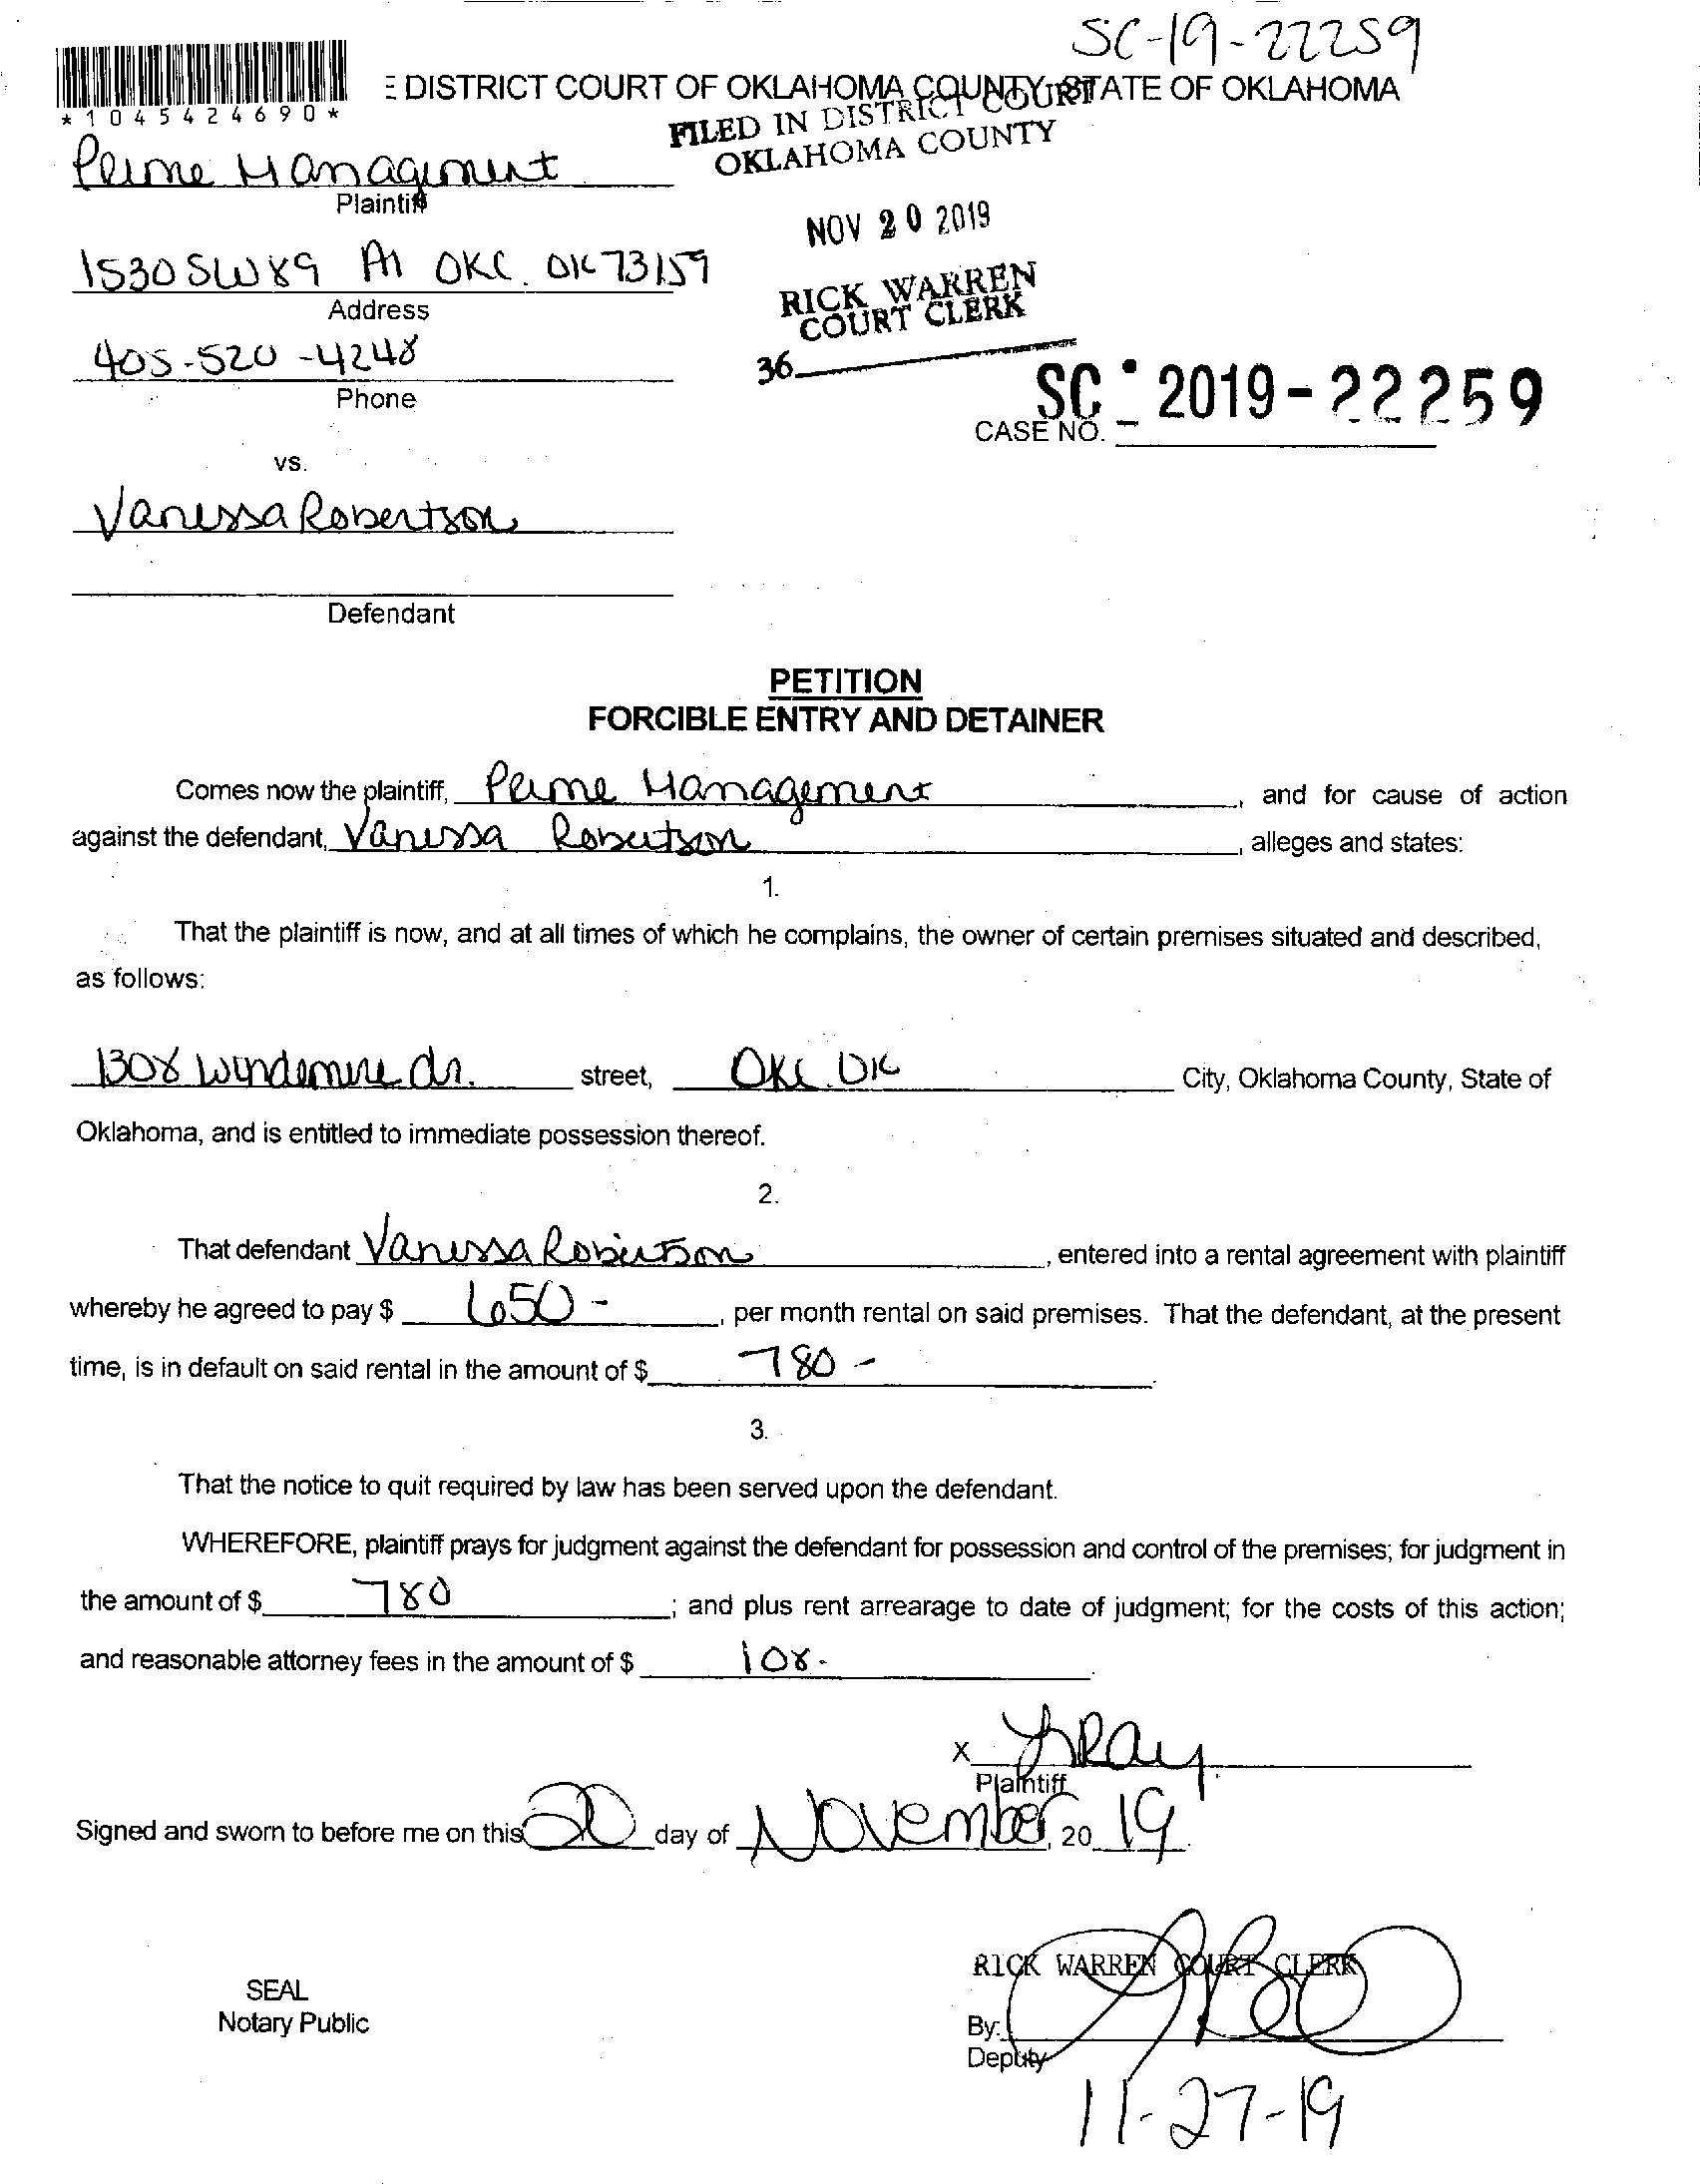 SC-19-22259
*1045424690*
E DISTRICT COURT OF OKLAHOMA COUNTY STATE OF OKLAHOMA
FILED IN DISTRICT COURT
OKLAHOMA COUNTY
Prime Management
Plaintiff
NOV 20 2019
1530 SW 89 A1 OKC. OK 73159
Address
RICK WARREN
COURT CLERK
405-520-4248
Phone
36
SC - 2019-22259
CASE NO.
vs.
Vanessa Robertson
Defendant
PETITION
FORCIBLE ENTRY AND DETAINER
Comes now the plaintiff, Prime Management, and for cause of action
against the defendant, Vanessa Robertson, alleges and states:
1.
That the plaintiff is now, and at all times of which he complains, the owner of certain premises situated and described,
as follows:
1308 Windemire dr. street, OKC. OK City, Oklahoma County, State of
Oklahoma, and is entitled to immediate possession thereof.
2.
That defendant Vanessa Robertson, entered into a rental agreement with plaintiff
whereby he agreed to pay $ 650-, per month rental on said premises. That the defendant, at the present
time, is in default on said rental in the amount of $ 780-
3.
That the notice to quit required by law has been served upon the defendant.
WHEREFORE, plaintiff prays for judgment against the defendant for possession and control of the premises; for judgment in
the amount of $ 780; and plus rent arrearage to date of judgment; for the costs of this action;
and reasonable attorney fees in the amount of $ 108-
X
Plaintiff
Signed and sworn to before me on this 20 day of November, 20 19.
RICK WARREN COURT CLERK
SEAL
Notary Public
By:
Deputy
11-27-19